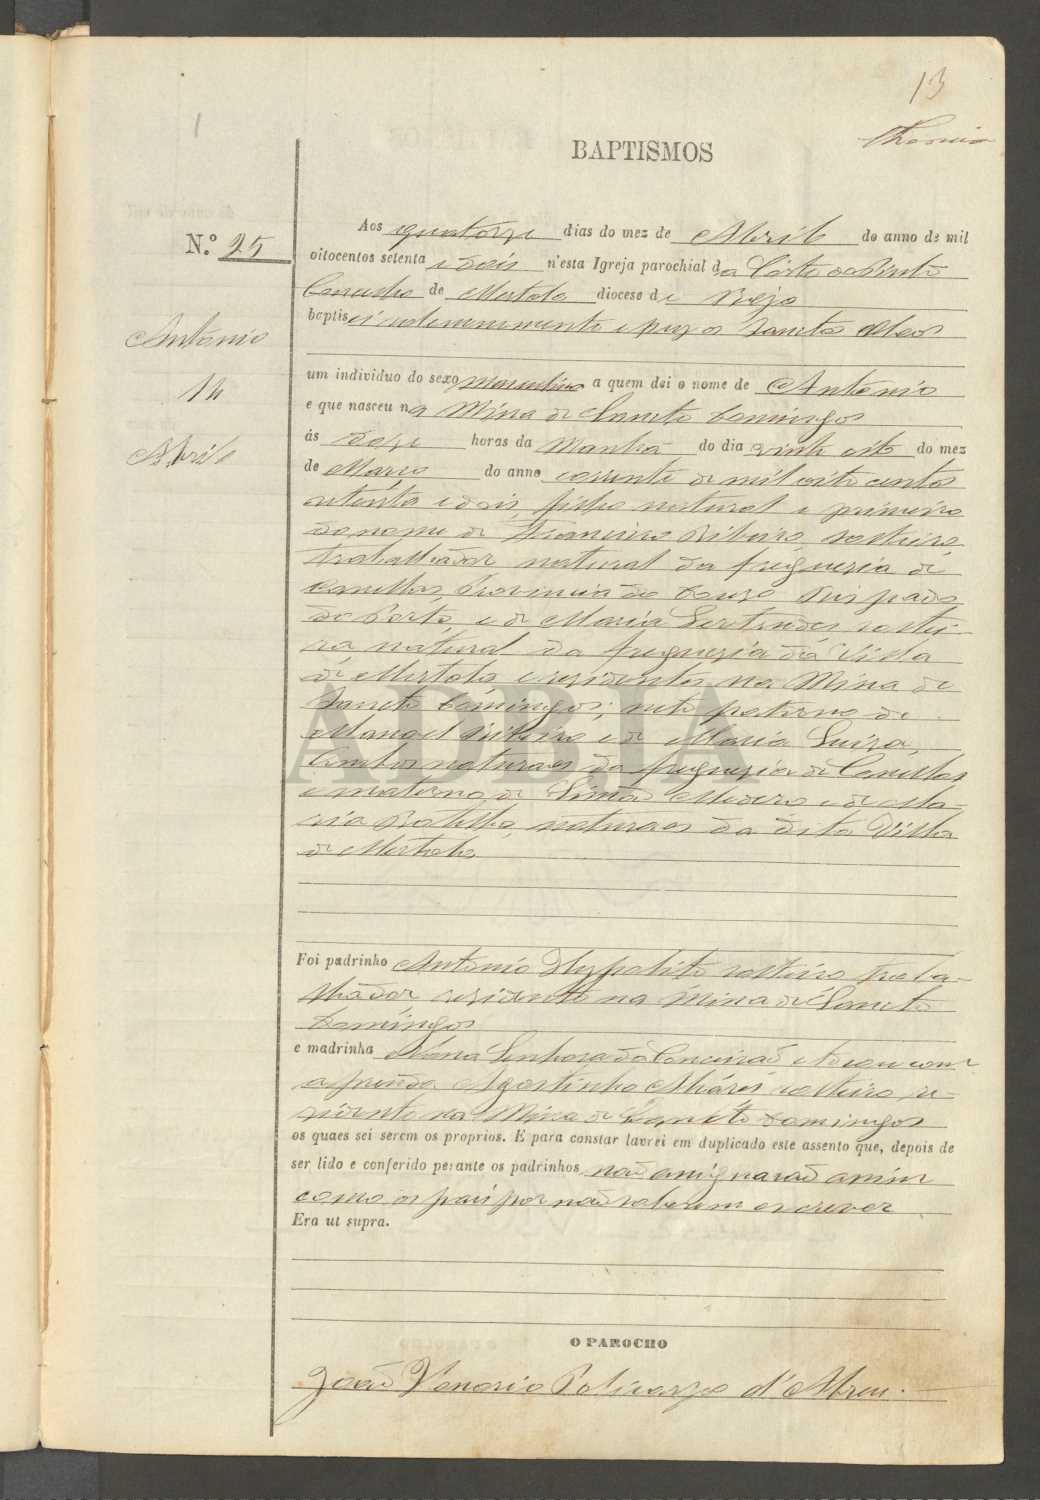 13
BAPTISMOS
N.º 25
Antonio
14
Abril
Aos quatorze dias do mez de Abril do anno de mil
oitocentos setenta e dois n'esta Igreja parochial da Côrte do Pinto
Concelho de Mertola diocese de Beja
baptisei solemnemente e puz os Sanctos Oleos
um individuo do sexo masculino a quem dei o nome de Antonio
e que nasceu na Mina de Sancto Domingos
ás doze horas da Manhã do dia vinte oito do mez
de Março do anno corrente de mil oito centos
setenta e dois, filho natural e primeiro
do nome de Francisco Ribeiro, solteiro
trabalhador natural da freguesia de
Canellas, Provincia do Douro Bispado
do Porto, e de Maria Gertrudes soltei-
ra natural da freguesia da Villa
de Mertola e residentes na Mina de
Sancto Domingos; neto paterno de
Manoel Ribeiro e de Maria Luiza,
ambos naturaes da freguesia de Canellas
e materno de Simão e de Ma-
ria naturaes da dita Villa
de Mertola
ADBJA
Foi padrinho Antonio Hyppolito solteiro traba-
lhador residente na Mina de Sancto
Domingos
e madrinha Nossa Senhora da Conceição e tocou com
a prenda Agostinho solteiro, re-
sidente na Mina de Sancto Domingos
os quaes sei serem os proprios. E para constar lavrei em duplicado este assento que, depois de
ser lido e conferido perante os padrinhos não assignarão assim
como os pais por não saberem escrever
Era ut supra.
O PAROCHO
João Venancio Policarpo d'Abreu.